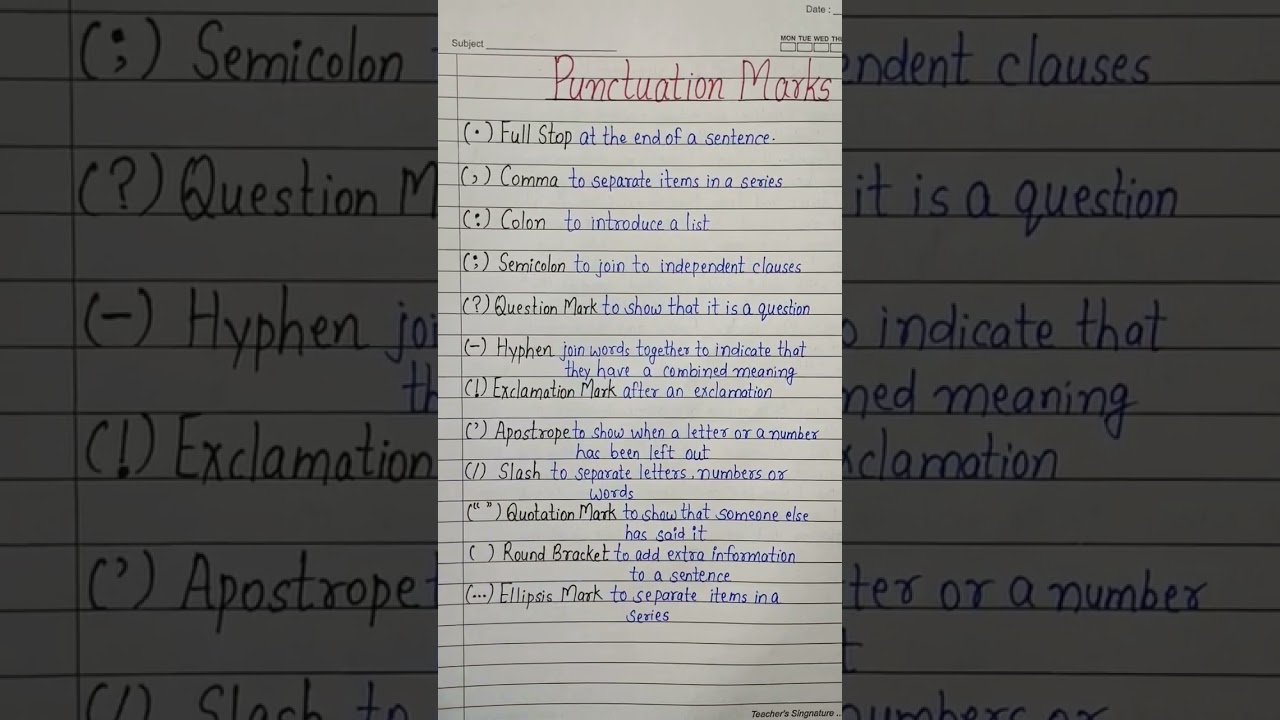 Date :
Subject
MON TUE WED THU
Punctuation Marks
(.) Full Stop at the end of a sentence.
(,) Comma to separate items in a series
(:) Colon to introduce a list
(;) Semicolon to join to independent clauses
(?) Question Mark to show that it is a question
(-) Hyphen join words together to indicate that
they have a combined meaning
(!) Exclamation Mark after an exclamation
(') Apostrope to show when a letter or a number
has been left out
(/) Slash to separate letters, numbers or
words
(“ ”) Quotation Mark to show that someone else
has said it
( ) Round Bracket to add extra information
to a sentence
(...) Ellipsis Mark to separate items in a
series
Teacher's Singnature ..
(;) Semicolon
(?) Question M
(-) Hyphen joi
th
(!) Exclamation
(') Apostrope
(/) Slash to
endent clauses
it is a question
o indicate that
ned meaning
xclamation
ter or a number
t
numbers or